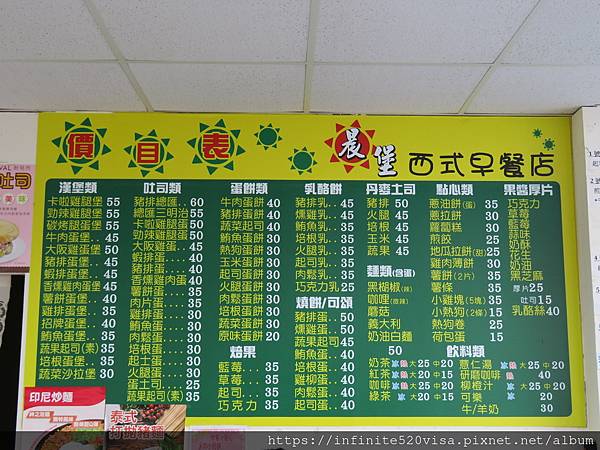 價目表
晨堡 西式早餐店
漢堡類
卡啦雞腿堡 55
勁辣雞腿堡 55
碳烤腿蛋堡 55
牛肉蛋堡.. 45
大阪雞蛋堡 50
豬排蛋堡.. 45
蝦排蛋堡.. 45
香燻雞肉蛋堡 45
薯餅蛋堡.. 40
雞排蛋堡.. 35
招牌蛋堡.. 40
鮪魚蛋堡.. 35
蔬果起司(素) 35
培根蛋堡.. 35
蔬菜沙拉堡 30
吐司類
豬排總匯.. 60
總匯三明治 55
卡啦蛋腿 50
勁辣雞腿蛋 50
大阪雞蛋. 45
蝦排蛋.... 40
豬排蛋.... 40
香燻雞肉蛋 40
薯餅蛋.... 35
肉片蛋.... 35
雞排蛋.... 35
鮪魚蛋.... 30
肉鬆蛋.... 30
培根蛋.... 30
起士蛋.... 30
火腿蛋.... 30
蛋土司.... 25
蔬果起司(素) 35
蛋餅類
牛肉蛋餅 40
豬排蛋餅 40
蔬菜起司 40
鮪魚蛋餅 30
熱狗蛋餅 30
玉米蛋餅 30
起司蛋餅 30
火腿蛋餅 30
肉鬆蛋餅 30
培根蛋餅 30
蔬菜蛋餅 30
原味蛋餅 20
焙果
藍莓... 35
草莓... 35
起司... 35
巧克力 35
乳酪餅
豬排乳.. 45
燻雞乳.. 45
鮪魚乳.. 35
培根乳.. 35
火腿乳.. 35
熱狗乳.. 35
玉米乳.. 35
起司乳.. 35
肉鬆乳.. 35
巧克力乳 25
燒餅/可頌
豬排蛋.. 50
燻雞蛋.. 50
蔬果起司 45
鮪魚蛋.. 40
培根蛋.. 40
火腿蛋.. 40
雞柳蛋.. 40
肉鬆蛋.. 40
起司蛋.. 40
丹麥土司
豬排 50
火腿 45
培根 45
玉米 45
蔬果 45
麵類(含蛋)
黑胡椒(微辣)
咖哩(微辣)
蘑菇
義大利
奶油白麵
50
點心類
蔥油餅(蛋) 35
蔥拉餅 30
蘿蔔糕 30
煎餃 25
地瓜拉餅(甜) 25
雞肉薄餅 30
薯餅(2片) 35
薯條 35
小雞塊(5塊) 35
小熱狗(2條) 15
熱狗卷 25
荷包蛋 15
果醬厚片
巧克力
草莓
藍莓
蒜味
奶酥
花生
奶油
黑芝麻
厚片25
吐司15
乳酪絲40
飲料類
奶茶 冰熱大25中20
紅茶 冰熱大25中20
咖啡 冰熱大25中20
綠茶 冰 大25中20
薏仁湯 冰 大25中20
研磨咖啡 熱 40
柳橙汁 冰 大25中20
可樂 冰 20
牛/羊奶 30
印尼炒麵
泰式
打拋豬麵
https://infinite520visa.pixnet.net/album